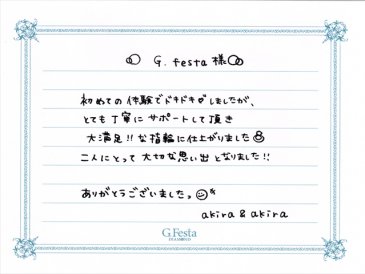 G. festa 様
初めての体験でドキドキしましたが、
とても丁寧にサポートして頂き
大満足!!な指輪に仕上がりました
二人にとって大切な思い出となりました!!
ありがとうございました。
akira & akira
G.Festa
DIAMOND